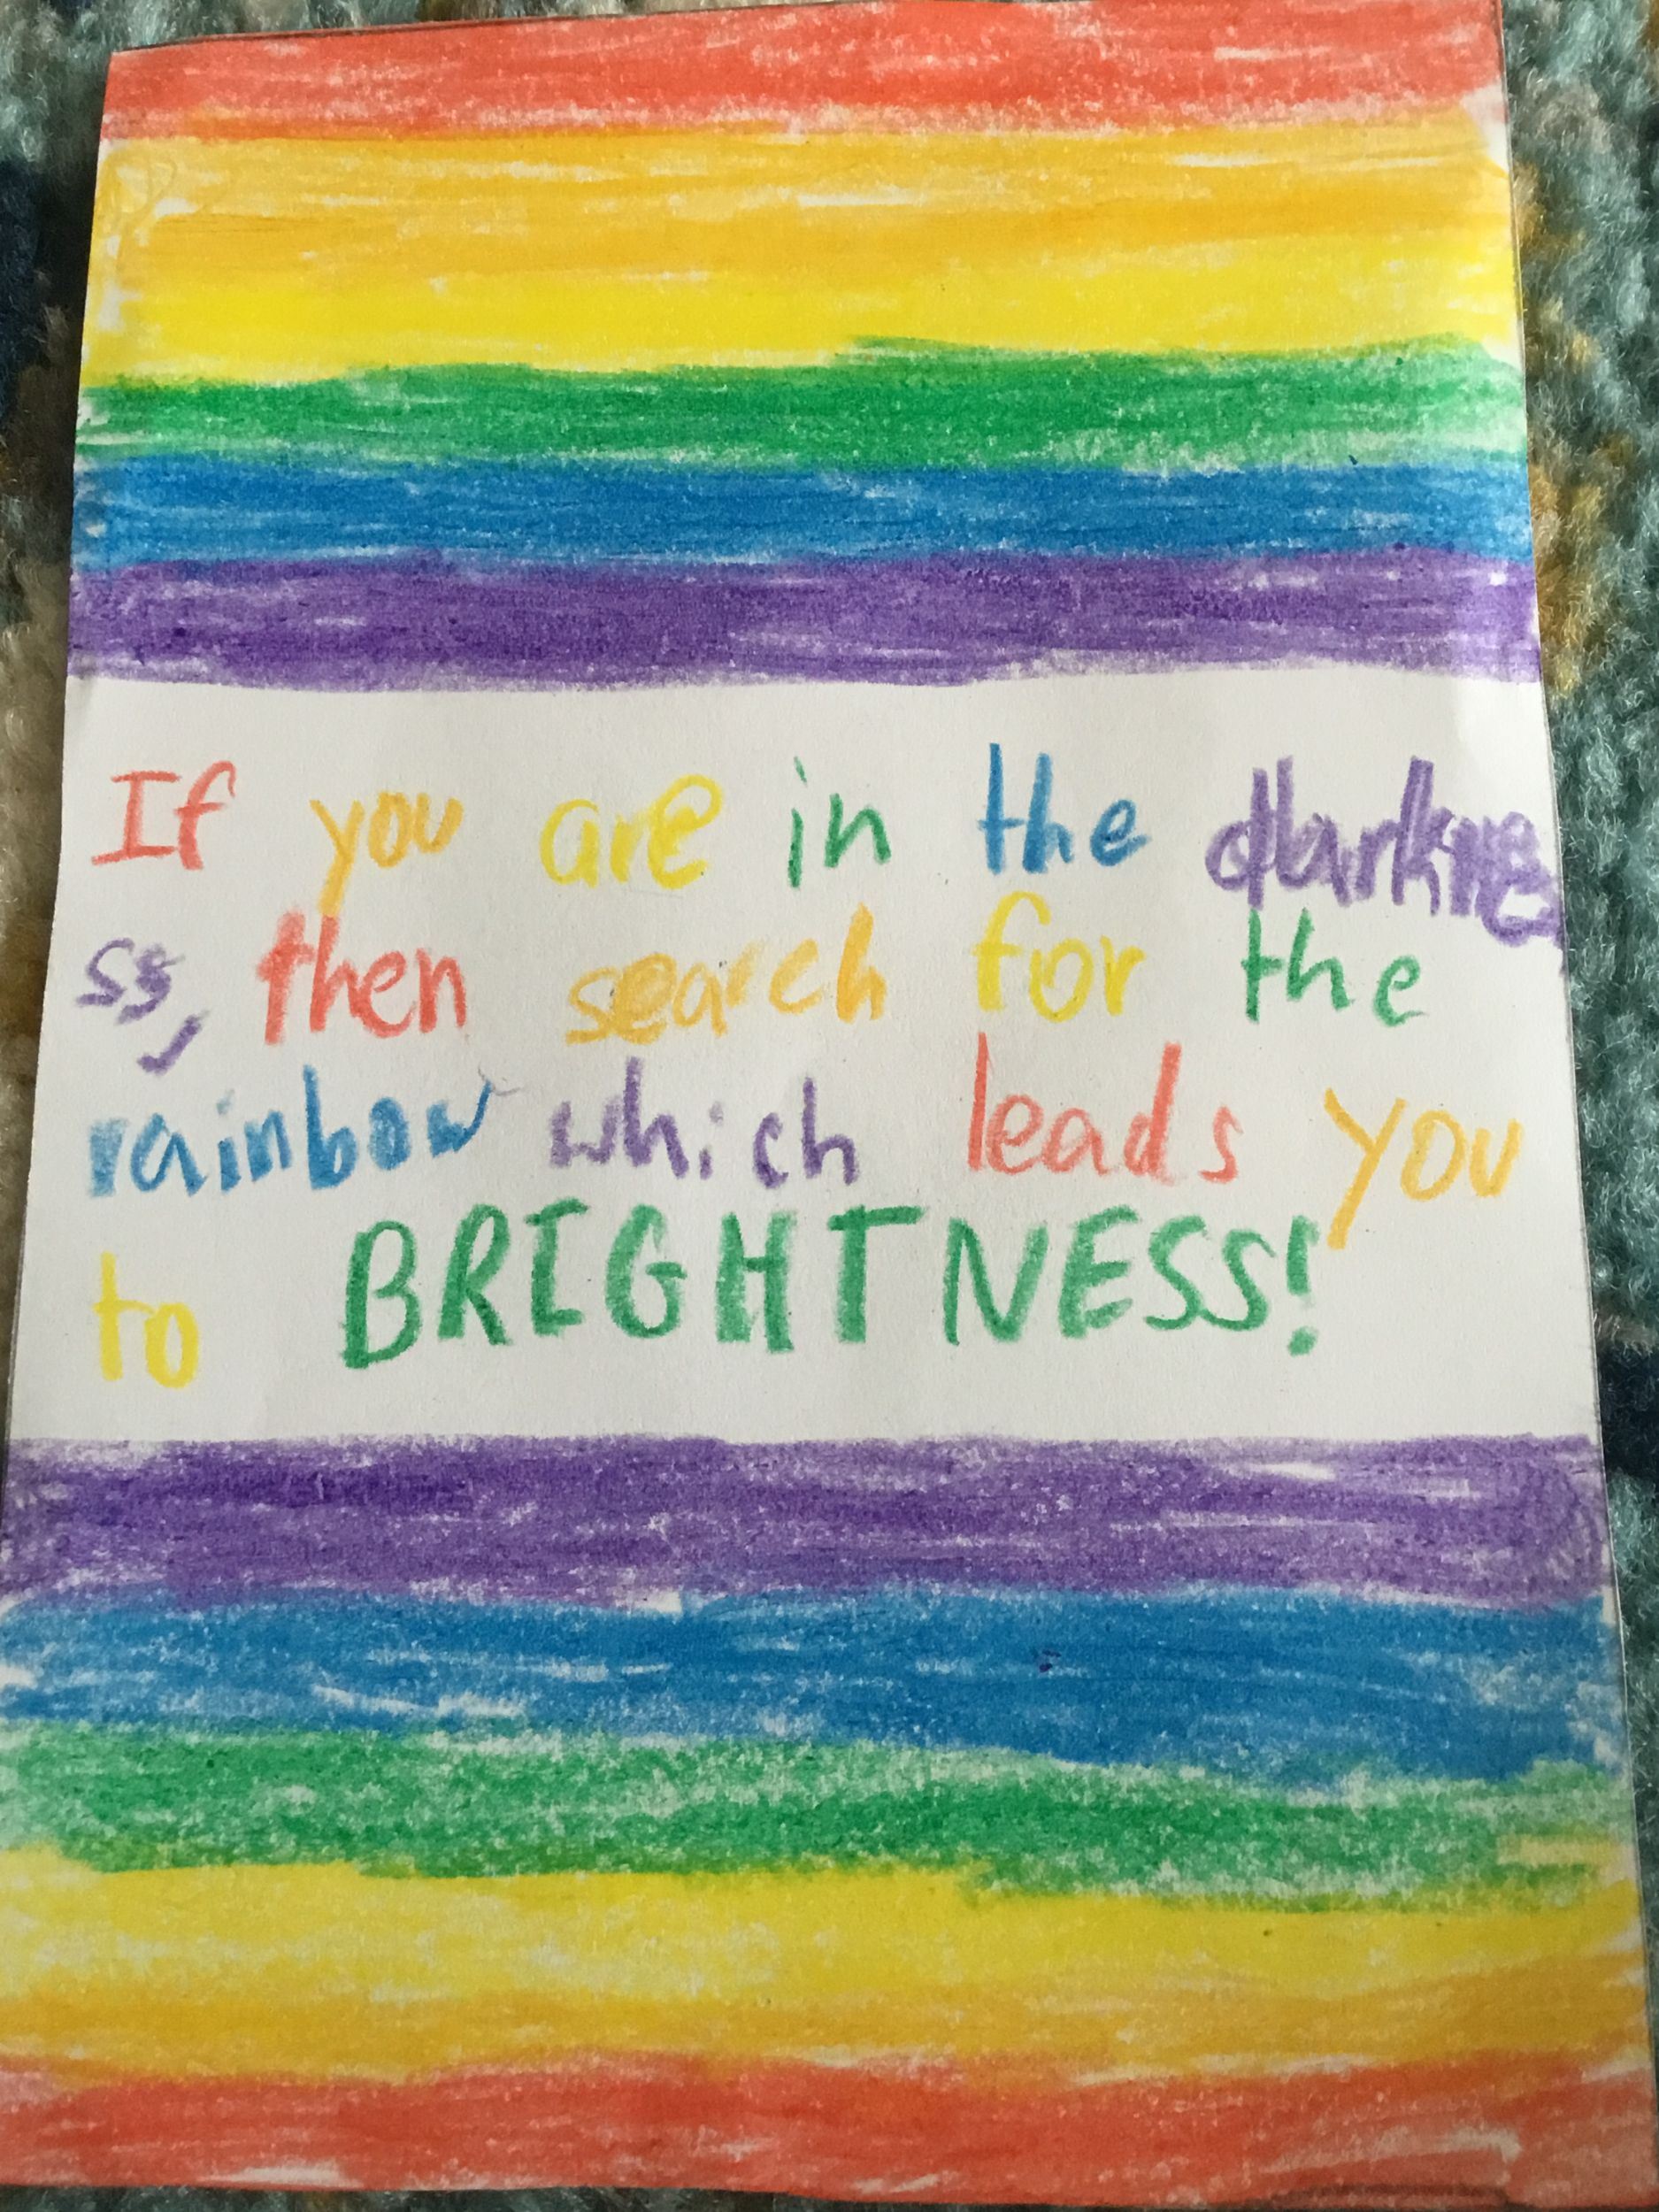 If you are in the darkne
ss, then search for the
rainbow which leads you
to BRIGHTNESS!